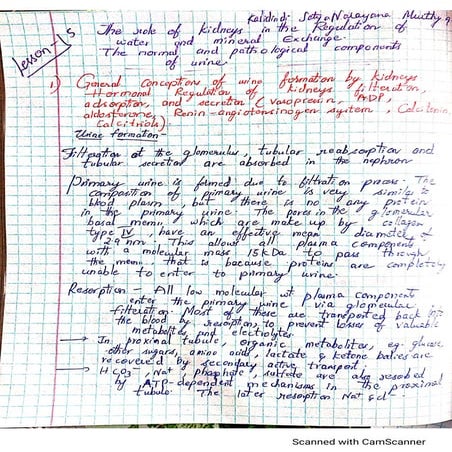 Kalidindi Satya Narayana Murthy
Lesson-15
The role of kidneys in the Regulation of
water and mineral Exchange
The normal and pathological components
of urine.
1) General conception of urine formation by kidneys
Hormonal Regulation of kidneys filteration,
adsorption, and secretion (vasopressin, ADF,
aldosterone, Renin-angiotonsinogen system, Calcitonin,
Calcitriols).
Urine formation-
Filtration at the glomerulus, tubular reabsorption and
tubular secretion are absorbed in the nephron
Primary urine is formed due to filtration process. The
composition of primary urine is very similar to
blood plasm, but there is no any protein
in the primary urine. The pores in the glomerular
basal memb. which are make up by collagen
type IV, have an effective mean diameter of
2.9 nm. This allows all plasma components
with a molecular mass 15 kDa to pass through
the mem. That is because proteins are completely
unable to enter to primary urine.
Resorption - All low molecular wt plasma component
enter the primary urine via glomerular
filteration. Most of these are transported back into
the blood by resorption, to prevent losses of valuable
metabolites and electrolytes.
→ In proximal tubule, organic metabolites, eg. glucose
other sugars, amino acids, lactate & ketone bodies are
recovered by secondary active transport.
→ HCO3-, Na+, phosphate, sulfate are also resorbed
by ATP-dependent mechanisms in the proximal
tubule. The later resorption Na+ & cl-
Scanned with CamScanner